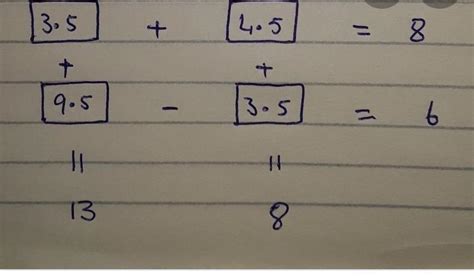 3.5 + 4.5 = 8
+ +
9.5 - 3.5 = 6
|| ||
13 8